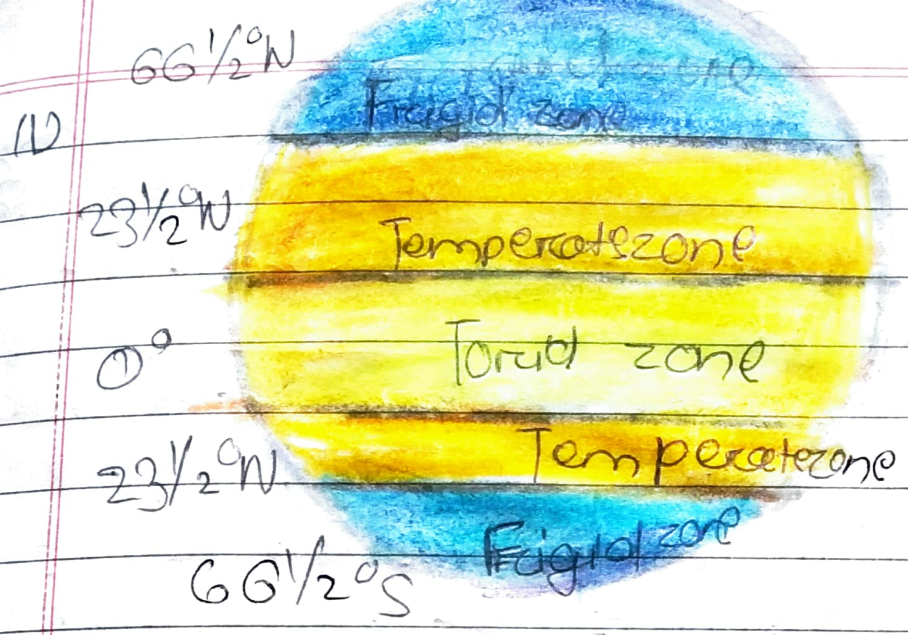 66 1/2°N
Frigid zone
(1)
23 1/2°N
Temperatezone
0°
Torrid zone
23 1/2°N
Temperatezone
Frigid zone
66 1/2°S